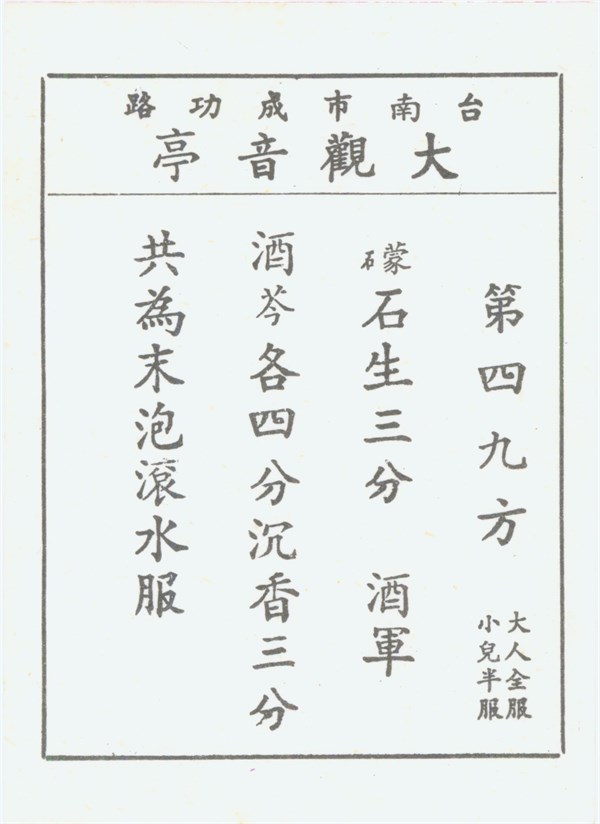 台南市成功路
大觀音亭
第四九方
大人全服
小兒半服
礞石生三分 酒軍
酒芩各四分沉香三分
共為末泡滾水服